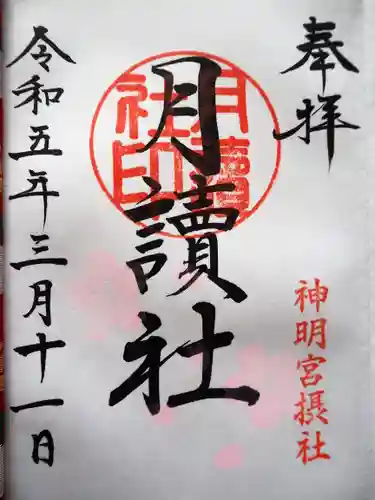 奉拝
月讀社
月讀社印
神明宮摂社
令和五年三月十一日